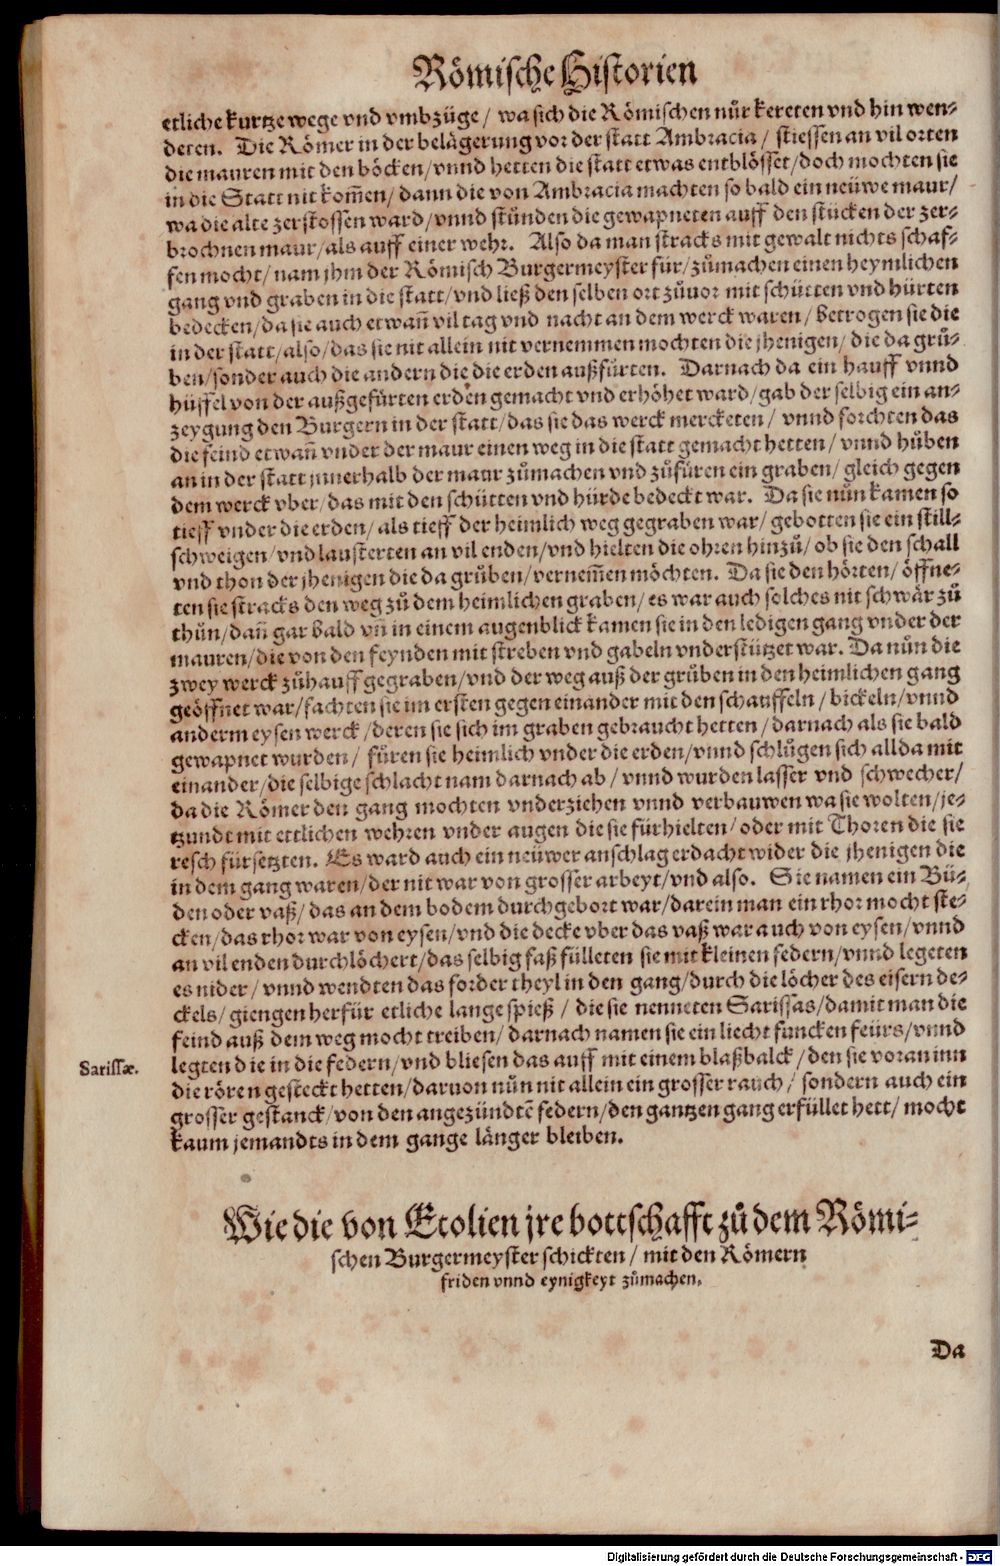 Römische Historien
etliche kurtze wege vnd vmbzüge / wa sich die Römischen nůr kereten vnd hin wen-
deten. Die Römer in der belägerung vor der statt Ambracia / stiessen an vil orten
die mauren mit den böcken / vnnd hetten die statt etwas entblösset / doch mochten sie
in die Statt nit kom̃en / dann die von Ambracia machten so bald ein neüwe maur /
wa die alte zerstossen ward / vnnd stůnden die gewapneten auff den stücken der zer-
brochnen maur / als auff einer wehr. Also da man stracks mit gewalt nichts schaf-
fen mocht / nam jhm der Römisch Burgermeyster für / zůmachen einen heymlichen
gang vnd graben in die statt / vnd ließ den selben ort zůuor mit schütten vnd hürten
bedecken / da sie auch etwañ vil tag vnd nacht an dem werck waren / betrogen sie die
in der statt / also / das sie nit allein nit vernemmen mochten die jhenigen / die da grů-
ben / sonder auch die andern die die erden außfůrten. Darnach da ein hauff vnnd
hüffel von der außgefůrten erden gemacht vnd erhöhet ward / gab der selbig ein an-
zeygung den Burgern in der statt / das sie das werck mercketen / vnnd forchten das
die feind etwañ vnder der maur einen weg in die statt gemacht hetten / vnnd hůben
an in der statt jnnerhalb der maur zůmachen vnd zůfüren ein graben / gleich gegen
dem werck vber / das mit den schütten vnd hürde bedeckt war. Da sie nůn kamen so
tieff vnder die erden / als tieff der heimlich weg gegraben war / gebotten sie ein still-
schweigen / vnd lausterten an vil enden / vnd hielten die ohren hinzů / ob sie den schall
vnd thon der jhenigen die da grůben / vernem̃en möchten. Da sie den hörten / öffne-
ten sie stracks den weg zů dem heimlichen graben / es war auch solches nit schwär zů
thůn / dañ gar bald vñ in einem augenblick kamen sie in den ledigen gang vnder der
mauren / die von den feynden mit streben vnd gabeln vnderstützet war. Da nůn die
zwey werck zůhauff gegraben / vnd der weg auß der grůben in den heimlichen gang
geöffnet war / fachten sie im ersten gegen einander mit den schauffeln / bickeln / vnnd
anderm eysen werck / deren sie sich im graben gebraucht hetten / darnach als sie bald
gewapnet wurden / füren sie heimlich vnder die erden / vnnd schlůgen sich allda mit
einander / die selbige schlacht nam darnach ab / vnnd wurden lasser vnd schwecher /
da die Römer den gang mochten vnderziehen vnnd verbauwen wa sie wolten / je-
tzundt mit ettlichen wehren vnder augen die sie fürhielten / oder mit Thoren die sie
resch fürsetzten. Es ward auch ein neüwer anschlag erdacht wider die jhenigen die
in dem gang waren / der nit war von grosser arbeyt / vnd also. Sie namen ein Bü-
den oder vaß / das an dem bodem durchgebort war / darein man ein rhor mocht ste-
cken / das rhor war von eysen / vnd die decke vber das vaß war auch von eysen / vnnd
an vil enden durchlöchert / das selbig faß fülleten sie mit kleinen federn / vnnd legeten
es nider / vnnd wendten das forder theyl in den gang / durch die löcher des eisern de-
ckels / giengen herfür etliche lange spieß / die sie nenneten Sarissas / damit man die
feind auß dem weg mocht treiben / darnach namen sie ein liecht funcken feürs / vnnd
Sarissæ.
legten die in die federn / vnd bliesen das auff mit einem blaßbalck / den sie voran inn
die rören gesteckt hetten / daruon nůn nit allein ein grosser rauch / sondern auch ein
grosser gestanck / von den angezündtẽ federn / den gantzen gang erfüllet hett / mocht
kaum jemandts in dem gange länger bleiben.
Wie die von Etolien jre bottschafft zů dem Römi-
schen Burgermeyster schickten / mit den Römern
friden vnnd eynigkeyt zůmachen.
Da
Digitalisierung gefördert durch die Deutsche Forschungsgemeinschaft - DFG